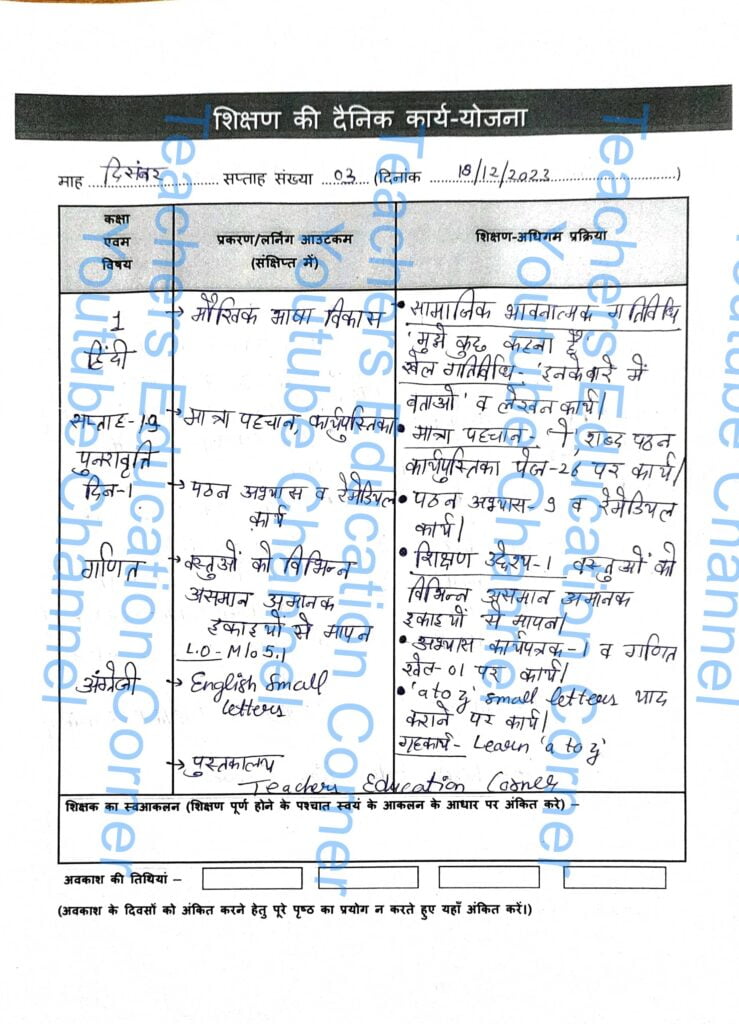 शिक्षण की दैनिक कार्य-योजना
माह दिसंबर सप्ताह संख्या 03 (दिनांक 18/12/2023)
कक्षा
एवम
विषय
प्रकरण/लर्निंग आउटकम
(संक्षिप्त में)
शिक्षण-अधिगम प्रक्रिया
1
हिंदी
सप्ताह-19
पुनरावृत्ति
दिन-1
गणित
अंग्रेजी
→ मौखिक भाषा विकास
→ मात्रा पहचान, कार्यपुस्तिका
→ पठन अभ्यास व रेमेडियल
कार्य
→ वस्तुओं को विभिन्न
असमान अमानक
इकाइयों से मापन
L.O-M105.1
→ English Small
letters
→ पुस्तकालय
• सामाजिक भावनात्मक गतिविधि
'मुझे कुछ कहना है'
खेल गतिविधि- 'इनके बारे में
बताओ' व लेखन कार्य।
• मात्रा पहचान - ो, शब्द पठन
कार्यपुस्तिका पेज-26 पर कार्य।
• पठन अभ्यास-9 व रेमेडियल
कार्य।
• शिक्षण उद्देश्य-1 वस्तुओं को
विभिन्न असमान अमानक
इकाइयों से मापना।
• अभ्यास कार्यपत्रक-1 व गणित
खेल-01 पर कार्य।
• 'a to z' small letters याद
कराने पर कार्य।
गृहकार्य- Learn 'a to z'
Teachers Education Corner
शिक्षक का स्वआकलन (शिक्षण पूर्ण होने के पश्चात स्वयं के आकलन के आधार पर अंकित करे) –
अवकाश की तिथियां –
(अवकाश के दिवसों को अंकित करने हेतु पूरे पृष्ठ का प्रयोग न करते हुए यहाँ अंकित करें।)
Teachers Education Corner
Youtube Channel
Teachers Education Corner
Youtube Channel
Teachers Education Corner
Youtube Channel